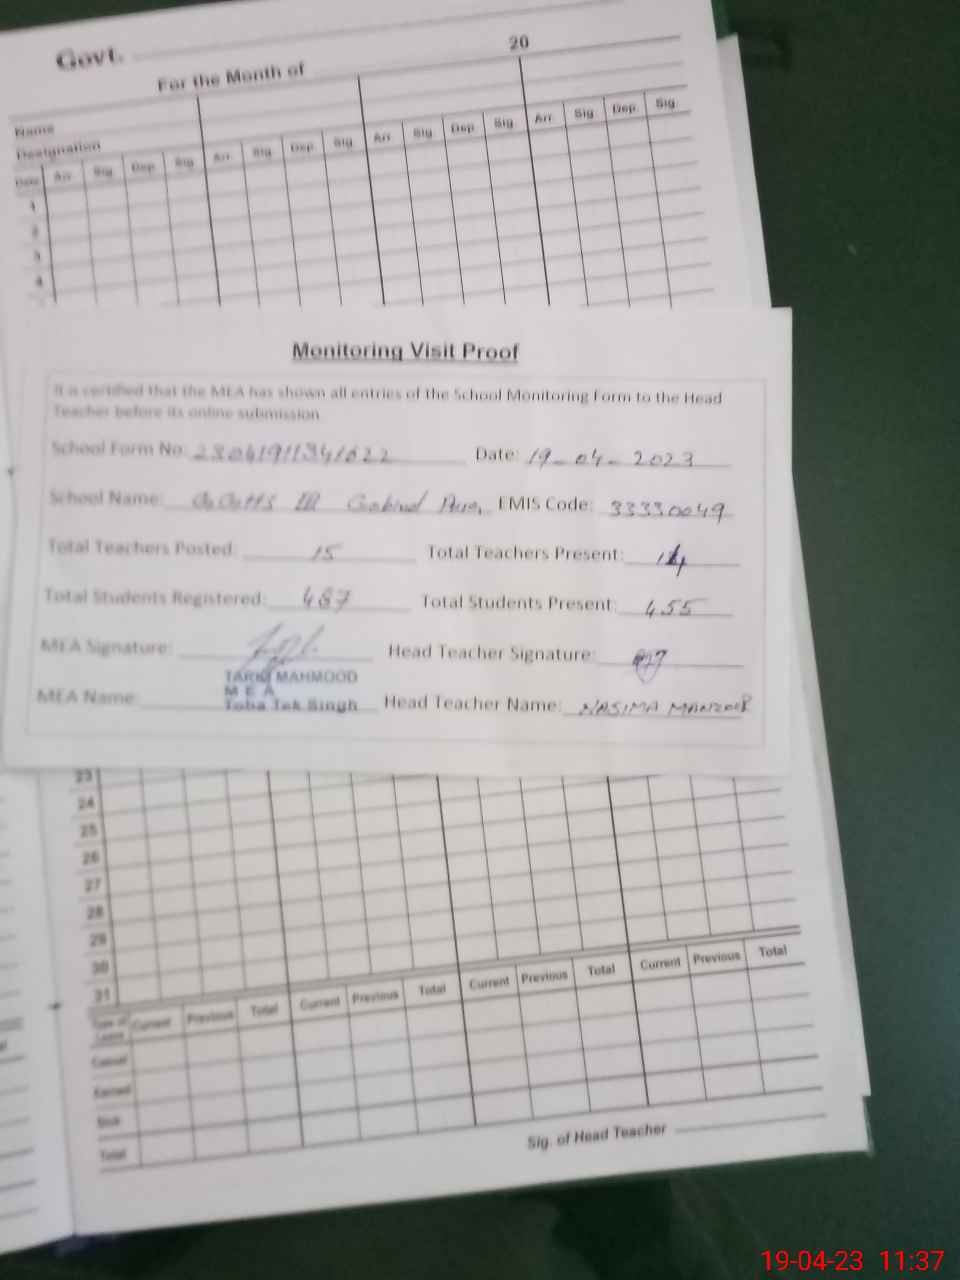 Govt.
20
For the Month of
Name
Designation
Date Arr Sig Dep Sig Arr Sig Dep Sig Arr Sig Dep Sig Arr Sig Dep Sig
1
2
3
4
Monitoring Visit Proof
It is certified that the MEA has shown all entries of the School Monitoring Form to the Head
Teacher before its online submission.
School Form No: Date: 19-04-2023
School Name: EMIS Code: 33330049
Total Teachers Posted: 15 Total Teachers Present: 14
Total Students Registered: 487 Total Students Present: 455
MEA Signature: Head Teacher Signature:
TARIQ MAHMOOD
M E A
MEA Name: Toba Tek Singh Head Teacher Name: NASIMA MANZOOR
23
24
25
26
27
28
29
30
31
Type of Leave Current Previous Total Current Previous Total Current Previous Total Current Previous Total
Casual
Earned
Sick
Total
Sig. of Head Teacher
19-04-23 11:37